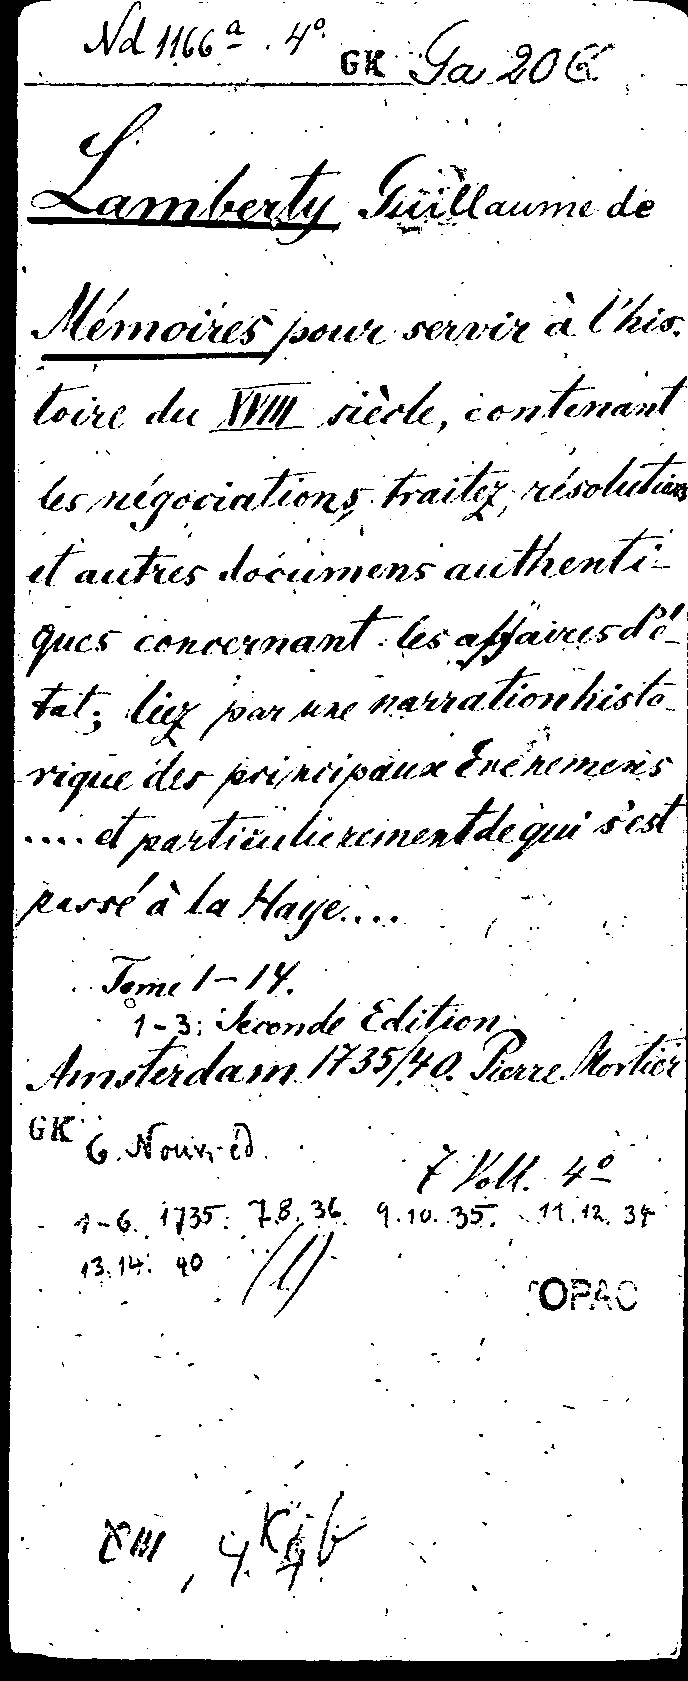 Nd 1166a. 4o
GK Ga 206
Lamberty Guillaume de
Mémoires pour servir à l'his-
toire du XVIII siècle, contenant
les négociations, traitez, résolutions
et autres documens authenti-
ques concernant les affaires d'é-
tat; liez par une narration histo-
rique des principaux Evénemens
.... et particulierement de qui s'est
passé à la Haye....
Tome 1-14.
1-3: Seconde Edition
Amsterdam 1735/40. Pierre Mortier
GK 6. Nouv. ed.
7 Voll. 4o
1-6. 1735. 7.8. 36. 9.10. 35. 11.12. 37
13.14. 40 (l)
OPAC
XIII, 4.